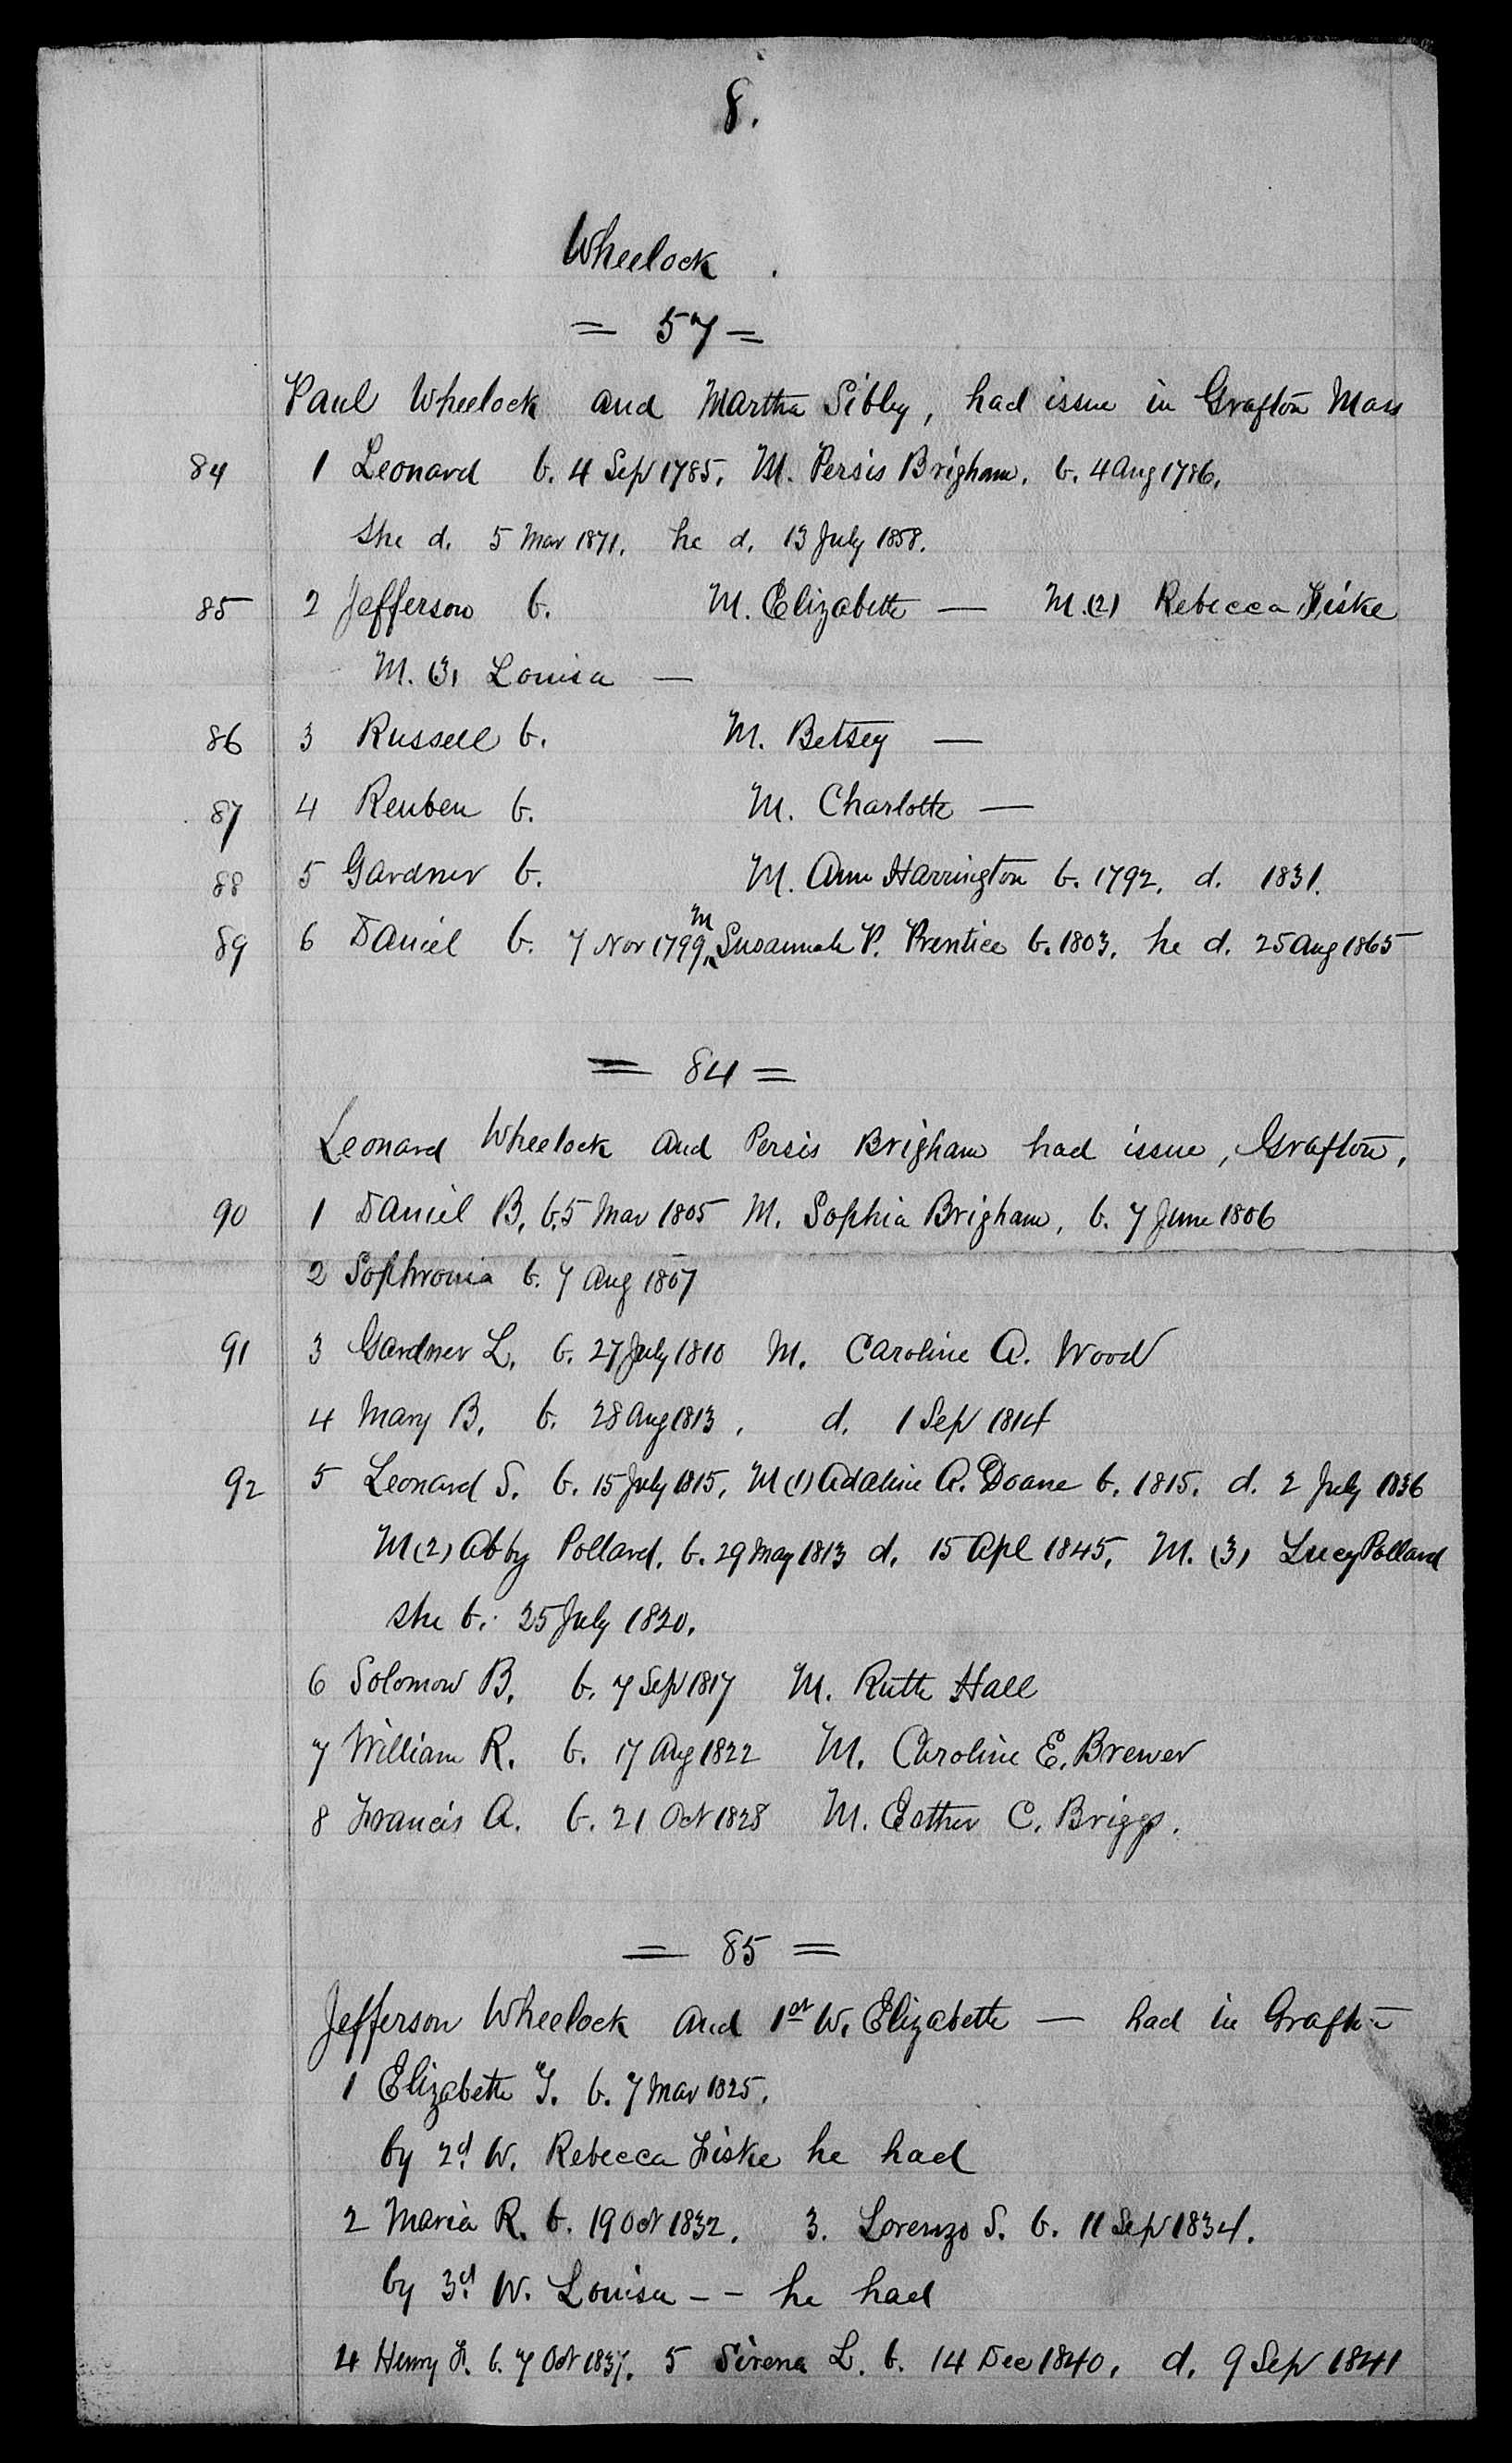 8.
Wheelock.
= 57 =
Paul Wheelock and Martha Sibley, had issue in Grafton Mass
84 1 Leonard b. 4 Sep 1785. M. Persis Brigham. b. 4 Aug 1786.
She d. 5 Mar 1871. he d. 13 July 1858.
85 2 Jefferson b. M. Elizabeth — M. (2) Rebecca Fiske
M. (3) Louisa —
86 3 Russell b. M. Betsey —
87 4 Reuben b. M. Charlotte —
88 5 Gardner b. M. Ann Harrington b. 1792. d. 1831.
89 6 Daniel b. 7 Nov 1799, M Susannah P. Prentice b. 1803. he d. 25 Aug 1865
= 84 =
Leonard Wheelock and Persis Brigham had issue, Grafton.
90 1 Daniel B. b. 5 Mar 1805 M. Sophia Brigham, b. 7 June 1806
2 Sophronia b. 7 Aug 1807
91 3 Gardner L. b. 27 July 1810 M. Caroline A. Wood
4 Mary B. b. 28 Aug 1813. d. 1 Sep 1814
92 5 Leonard S. b. 15 July 1815. M (1) Adaline A. Doane b. 1815. d. 2 July 1836
M (2) Abby Pollard. b. 29 May 1813 d. 15 Apl 1845. M. (3) Lucy Pollard
she b. 25 July 1820.
6 Solomon B. b. 7 Sep 1817 M. Ruth Hall
7 William R. b. 17 Aug 1822 M. Caroline E. Brewer
8 Francis A. b. 21 Oct 1828 M. Esther C. Briggs.
= 85 =
Jefferson Wheelock and 1st W. Elizabeth — had in Grafton
1 Elizabeth T. b. 7 Mar 1825.
by 2d W. Rebecca Fiske he had
2 Maria R. b. 19 Oct 1832. 3. Lorenzo S. b. 11 Sep 1834.
by 3d W. Louisa - - he had
4 Henry F. b. 7 Oct 1837. 5 Sirena L. b. 14 Dec 1840. d. 9 Sep 1841